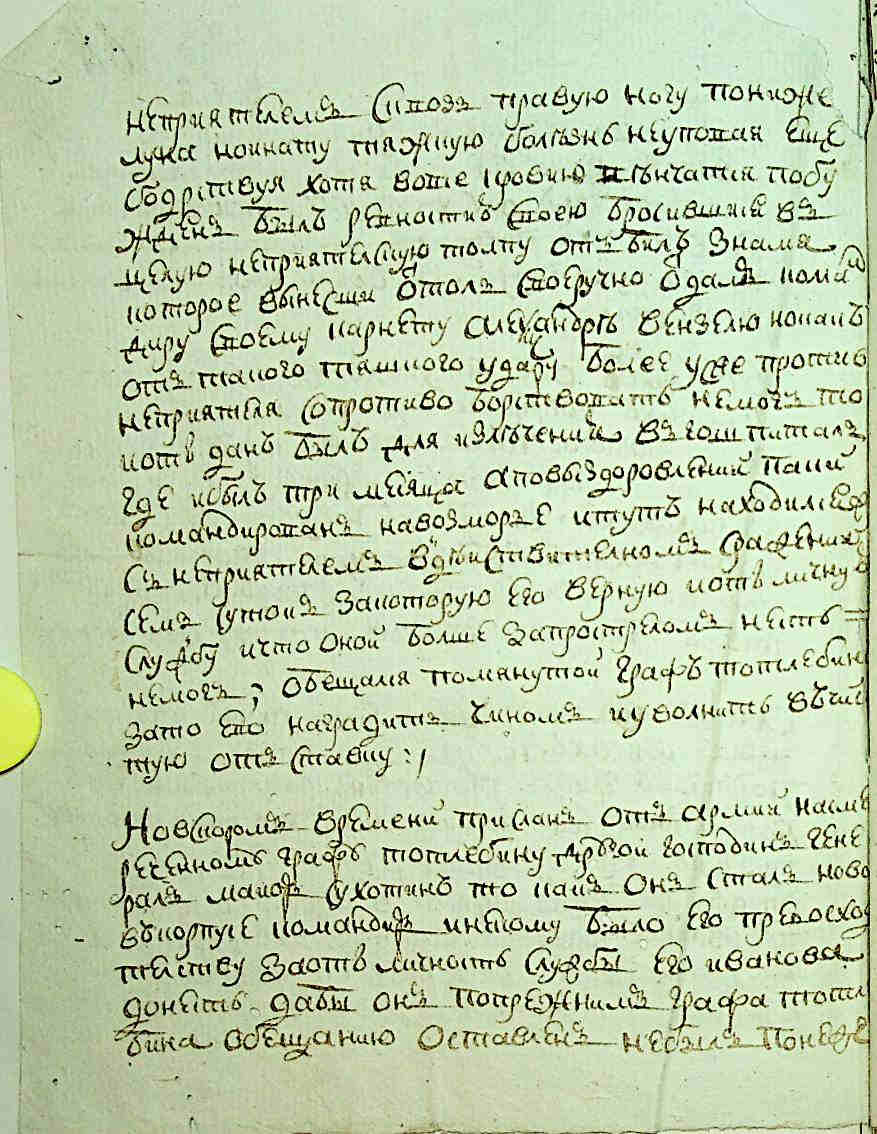 неприятелемъ сквозь правую ногу пониже
лука но и на ту тяжкую болезнь неуповая еще
бодрствуя хотя вовсе кровию пънчатия побу
жденъ былъ ревностию своею бросившися въ
целую неприятелскую толпу отъбилъ знамя
которое вынесши оттоль своеручно одалъ коман
диру своему корнету Александръ Вензелю но какъ
отъ такого тяшкого удару более уже противъ
неприятеля сопротивоборствовать немогъ то
и отъ данъ былъ для излѣчения въ гошпиталь
где и былъ три месяца а по выздоровлении паки
командированъ на возморье и тутъ находился
съ неприятелемъ в дѣйствителномъ сражении
семь сутокъ за которую его верную и отъличную
службу и что оной болше за прострѣломъ несть
немогъ, обещался помянутой графъ Тотлебин
за то его наградить чиномъ и уволнить въ чис
тую отъ ставку:/

Но вскоромъ времени присланъ отъ армии на смѣ
реченномъ графъ Тотлебину другой господинъ гене
ралъ маиоръ Сухотинъ то какъ онъ сталъ ново
въ корпусе командиръ и некому было его превосхо
телству за отъличность службы его Иванова
донесть дабы онъ по прежнимъ графа Тотле
бина обещанию оставленъ небылъ понеже